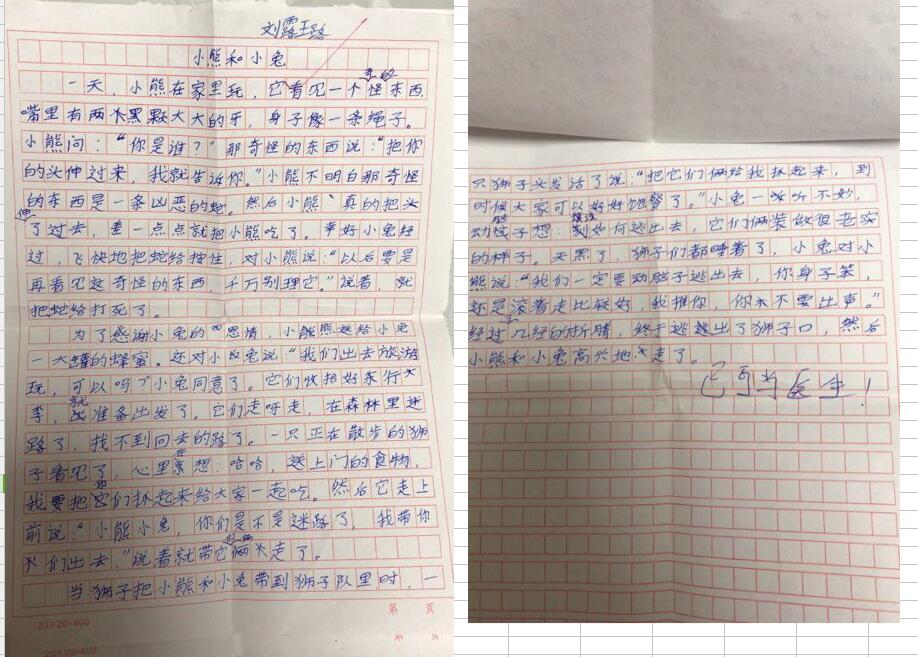 刘露王路
小熊和小兔
一天，小熊在家里玩，它看见一个奇怪的东西，
嘴里有两个黑颗大大的牙，身子像一条绳子。
小熊问：“你是谁？”那奇怪的东西说：“把你
的头伸过来，我就告诉你。”小熊不明白那奇怪
的东西是一条凶恶的蛇。然后小熊、真的把头
伸了过去，差一点点就把小熊吃了。幸好小兔经
过，飞快地把蛇给按住，对小熊说：“以后要是
再看见这奇怪的东西，千万别理它。”说着，就
把蛇给打死了。
为了感谢小兔的恩情，小熊送给小兔
一大罐的蜂蜜。还对小兔说：“我们出去旅游
玩，可以吗？”小兔同意了。它们收拾好行
李，就准备出发了。它们走呀走，在森林里迷
路了，找不到回去的路了。一只正在散步的狮
子看见了，心里在想：哈哈，送上门的食物，
我要把你们抓起来给大家一起吃。然后它走上
前说：“小熊小兔，你们是不是迷路了，我带你
们出去，”说着就带它俩走了。
当狮子把小熊和小兔带到狮子队里时，一
第 页
20×20=400
20×20=400
只狮子头发话了说：“把它们俩给我抓起来，到
时候大家可以好好饱餐了。”小兔一听不妙，
动脑子想：如何逃出去，它们俩装做很老实
的样子。天黑了，狮子们都睡着了，小兔对小
熊说：“我们一定要动脑子逃出去，你身子笨，
还是滚着走比较好，我推你，你不要出声。”
经过几经的折腾，终于逃出了狮子口，然后
小熊和小兔高兴地走了。